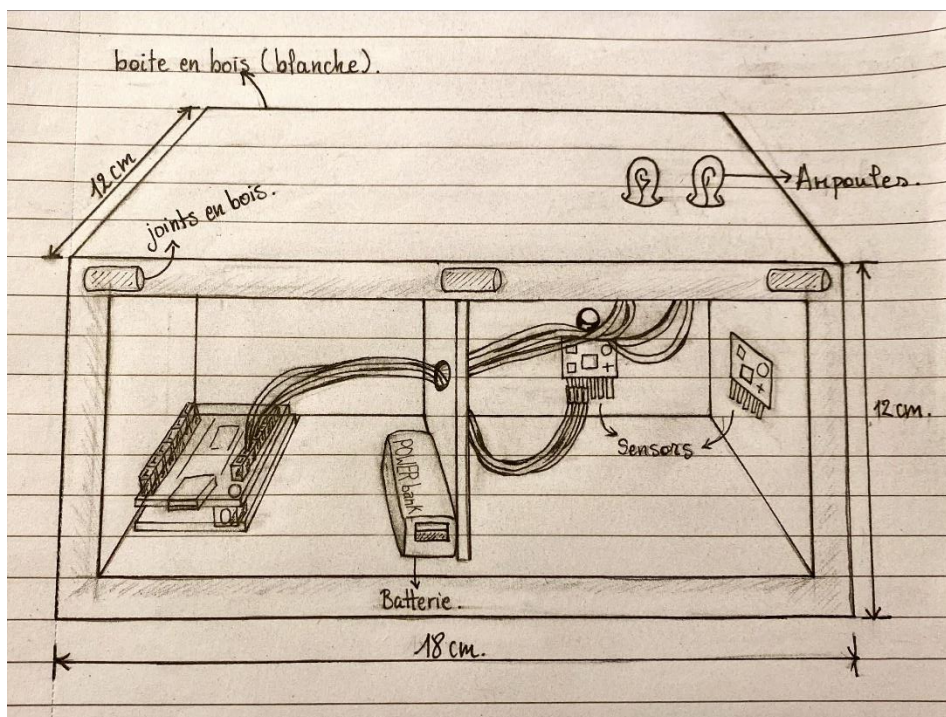 boite en bois (blanche).
12cm
joints en bois.
Ampoules.
12cm.
Sensors
POWER bank
Batterie.
18cm.